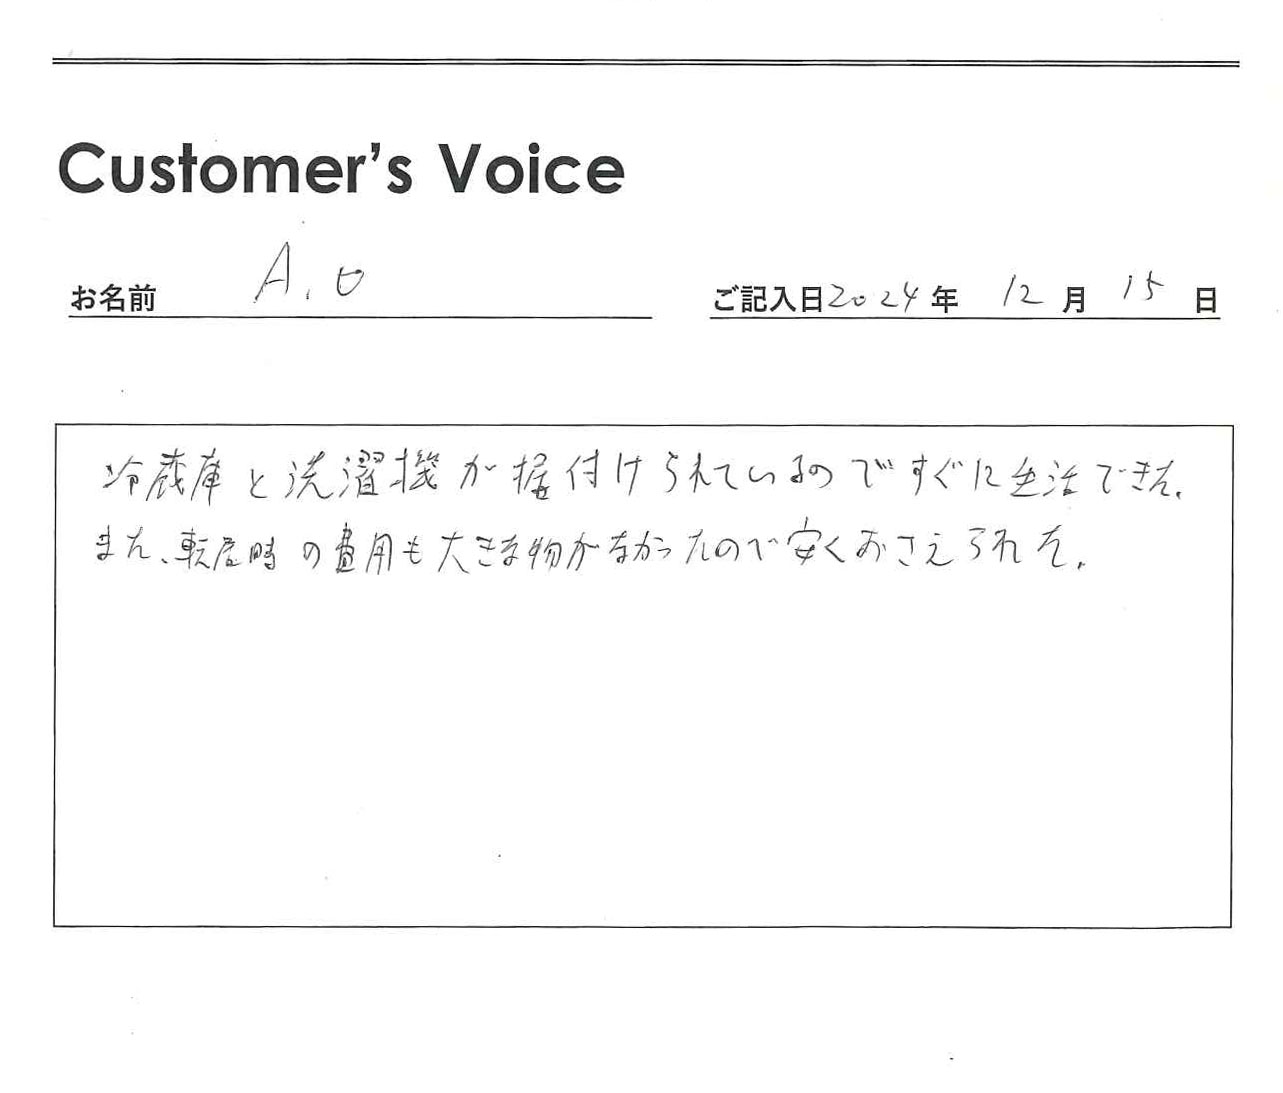 Customer's Voice
お名前 A.O ご記入日2024年 12月 15日
冷蔵庫と洗濯機が据付けられているのですぐに生活できた。
また、転居時の費用も大きな物がなかったので安くおさえられた。